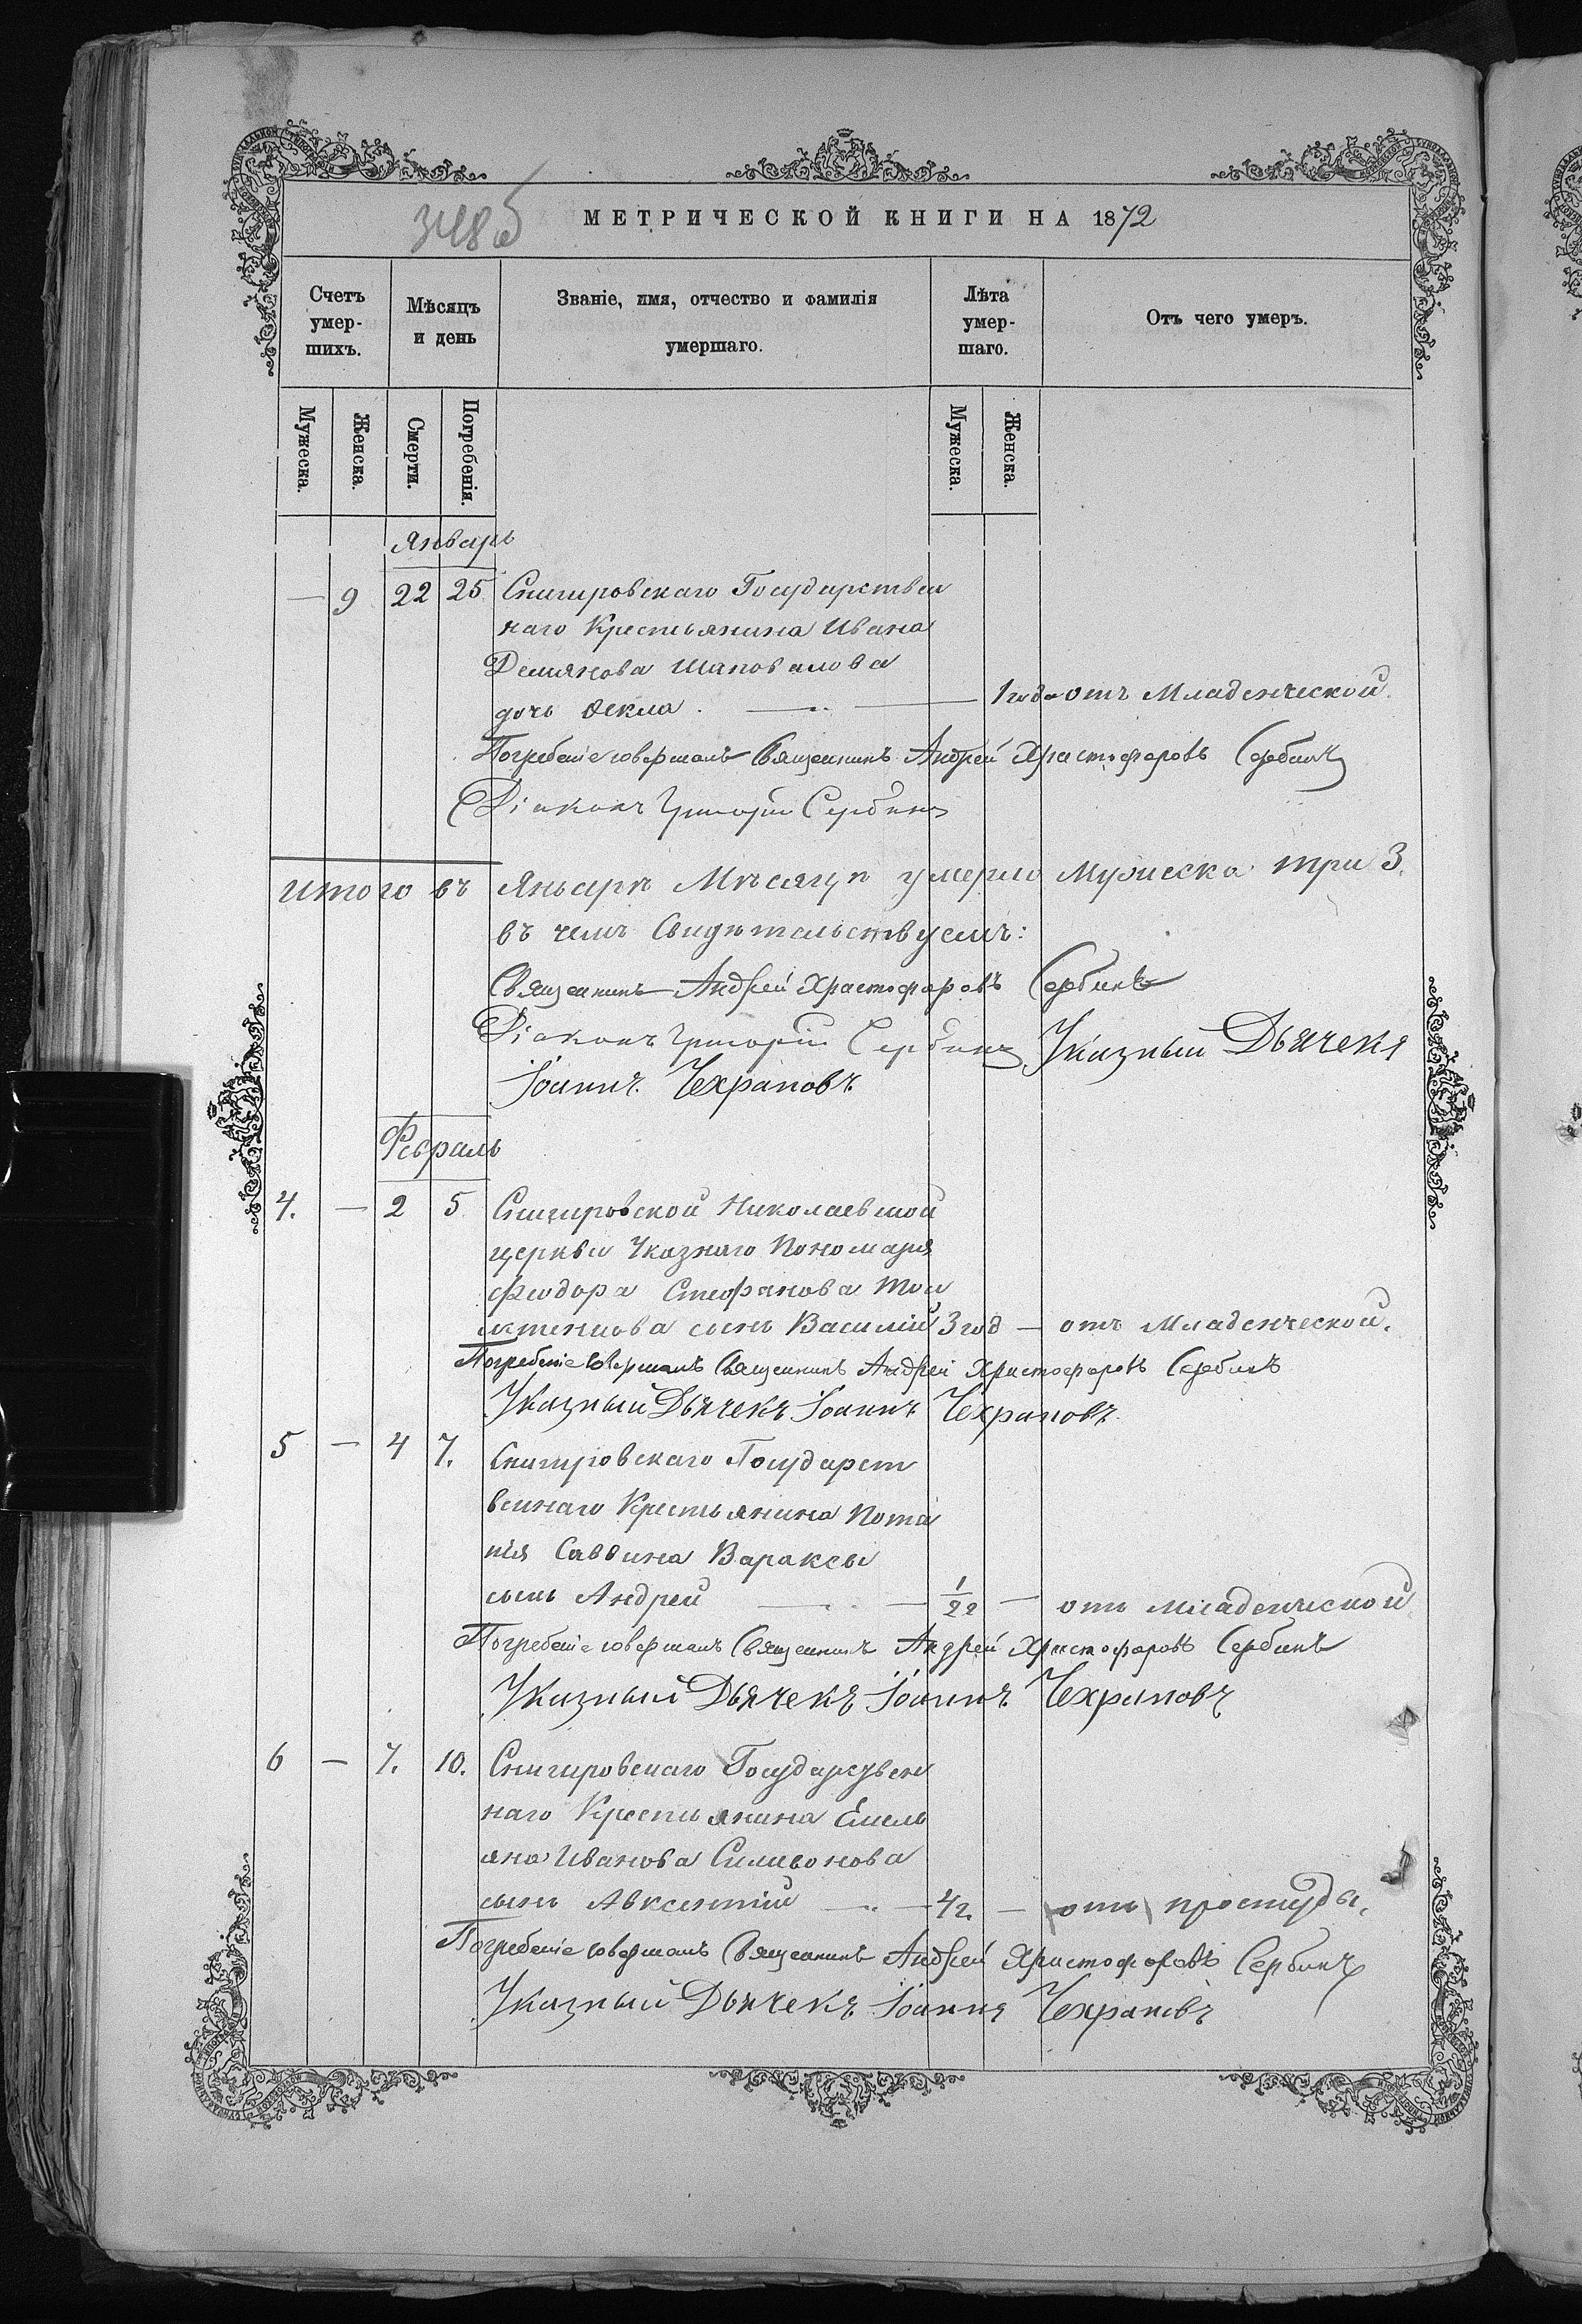 348об
МЕТРИЧЕСКОЙ КНИГИ НА 1872
Счетъ умер- шихъ.
Мѣсяцъ и день
Званіе, имя, отчество и фамилія умершаго.
Лѣта умер- шаго.
Отъ чего умеръ.
Мужеска. Женска. Смерти. Погребенія. Мужеска. Женска.
Январь
— 9 22 25 Снигировскаго Государствен
наго Крестьянина Ивана
Демянова Шаповалова
дочь Ѳекла. — 1 года отъ Младенческой.
Погребеніе совершалъ Священникъ Андрей Христофоровъ Сербинъ
Діаконъ Григорій Сербинъ
Итого въ Январѣ Мѣсяцѣ умерло Мужеска три 3.
въ чемъ Свидѣтельствуемъ:
Священникъ Андрей Христофоровъ Сербинъ
Діаконъ Григорій Сербинъ Указный Дьячекъ
Іоаннъ Чехрановъ
Февраль
4. — 2 5 Снигировской Николаевской
церкви Указнаго Пономаря
Феодора Стефанова
сынъ Василій 3 год — отъ Младенческой.
Погребеніе совершалъ Священникъ Андрей Христофоровъ Сербинъ
Указный Дьячекъ Іоаннъ Чехрановъ
5 — 4 7. Снигировскаго Государст
веннаго Крестьянина Пота
пія Саввина Вараксы
сынъ Андрей — 1/22 — отъ младенческой
Погребеніе совершалъ Священникъ Андрей Христофоровъ Сербинъ
Указный Дьячекъ Іоаннъ Чехрановъ
6 — 7. 10. Снигировскаго Государствен
наго Крестьянина Емель
яна Иванова Симионова
сынъ Авксентій — 1/2 — отъ простуды.
Погребеніе совершалъ Священникъ Андрей Христофоровъ Сербинъ
Указный Дьячекъ Іоаннъ Чехрановъ